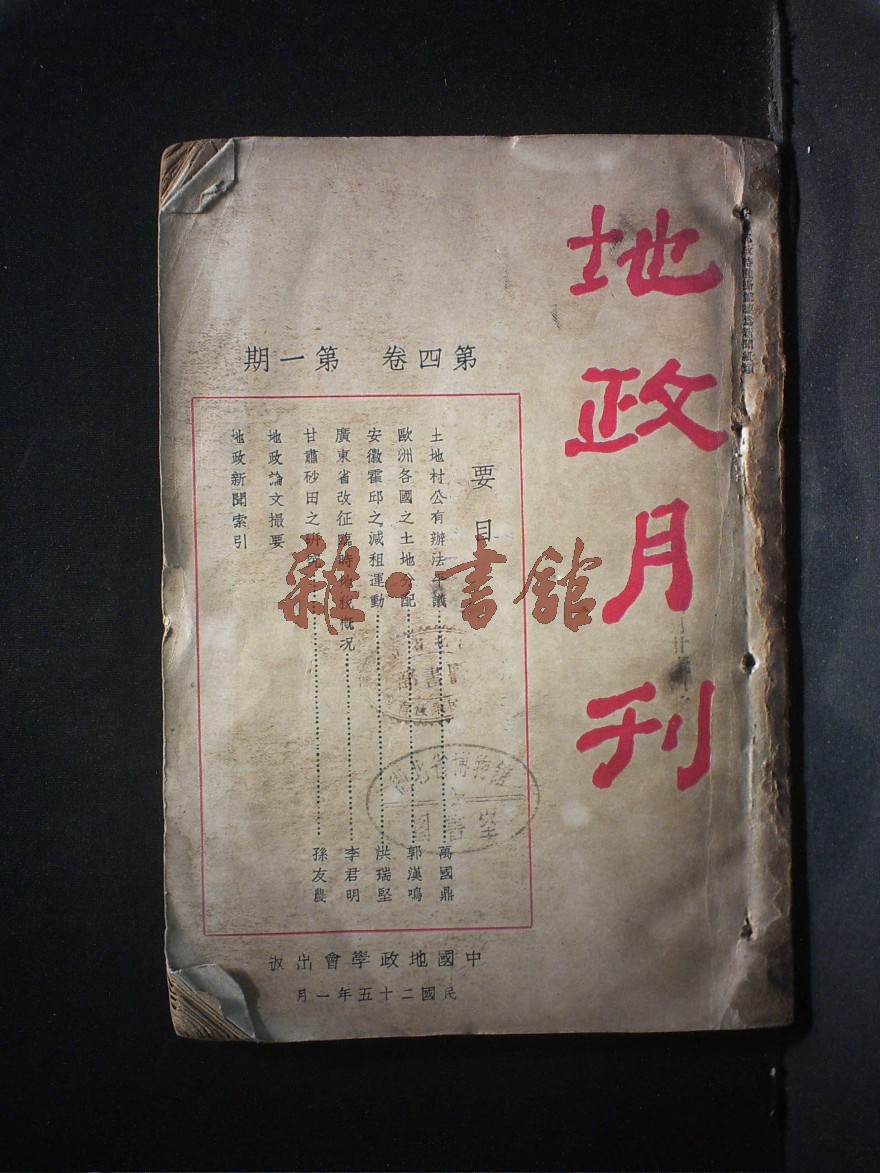 地政月刊
第四卷 第一期
要目
土地村公有辦法平議 萬國鼎
歐洲各國之土地分配 郭漢鳴
安徽霍邱之減租運動 洪瑞堅
廣東省改征臨時地稅概況 李君明
甘肅砂田之研究 孫友農
地政論文撮要
地政新聞索引
中國地政學會出版
民國二十五年一月
雜·書館
湖北省博物館
圖書室